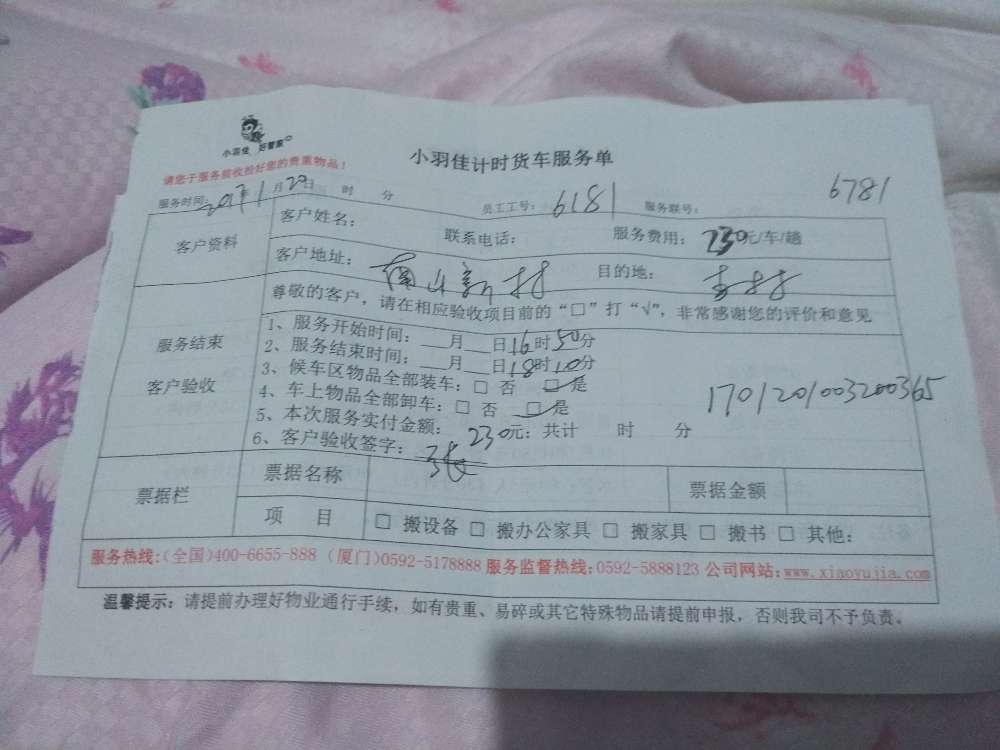 小羽佳 好管家
小羽佳计时货车服务单
请您于服务前收拾好您的贵重物品！
服务时间：2017年1月20日 时 分 员工工号：6181 服务联号：6781
客户资料 客户姓名： 联系电话： 服务费用：230元/车/趟
客户地址： 新村 目的地：
尊敬的客户，请在相应验收项目前的“□”打“√”，非常感谢您的评价和意见
服务结束
客户验收
1、服务开始时间：___月___日16时50分
2、服务结束时间：___月___日18时10分
3、候车区物品全部装车：□ 否 □ 是
4、车上物品全部卸车：□ 否 □ 是
1701201003200365
5、本次服务实付金额：230元：共计 时 分
6、客户验收签字：张
票据栏 票据名称 票据金额
项 目 □ 搬设备 □ 搬办公家具 □ 搬家具 □ 搬书 □ 其他：
服务热线:(全国)400-6655-888 (厦门)0592-5178888 服务监督热线:0592-5888123 公司网站:www.xiaoyujia.com
温馨提示：请提前办理好物业通行手续，如有贵重、易碎或其它特殊物品请提前申报，否则我司不予负责。